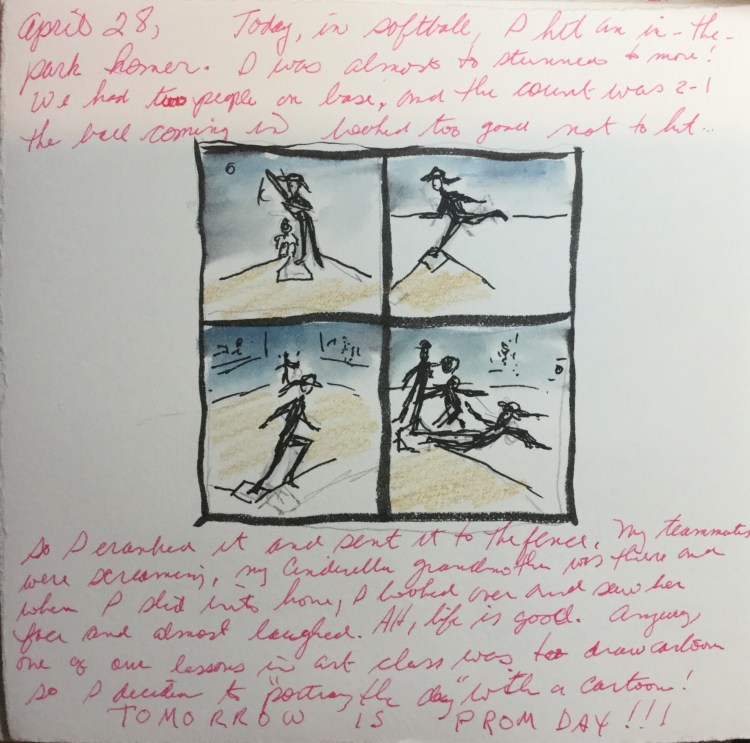 April 28, Today, in softball, I hit an in-the-
park homer. I was almost to stunned to move!
We had two people on base, and the count was 2-1
the ball coming in looked too good not to hit...
so I cranked it and sent it to the fence. My teammates
were screaming, my Cinderella grandmother was there and
when I slid into home, I looked over and saw her
face and almost laughed. Ah, life is good. Anyway,
one of our lessons in art class was to draw cartoon
so I decided to "portray the day" with a cartoon!
TOMORROW IS PROM DAY!!!